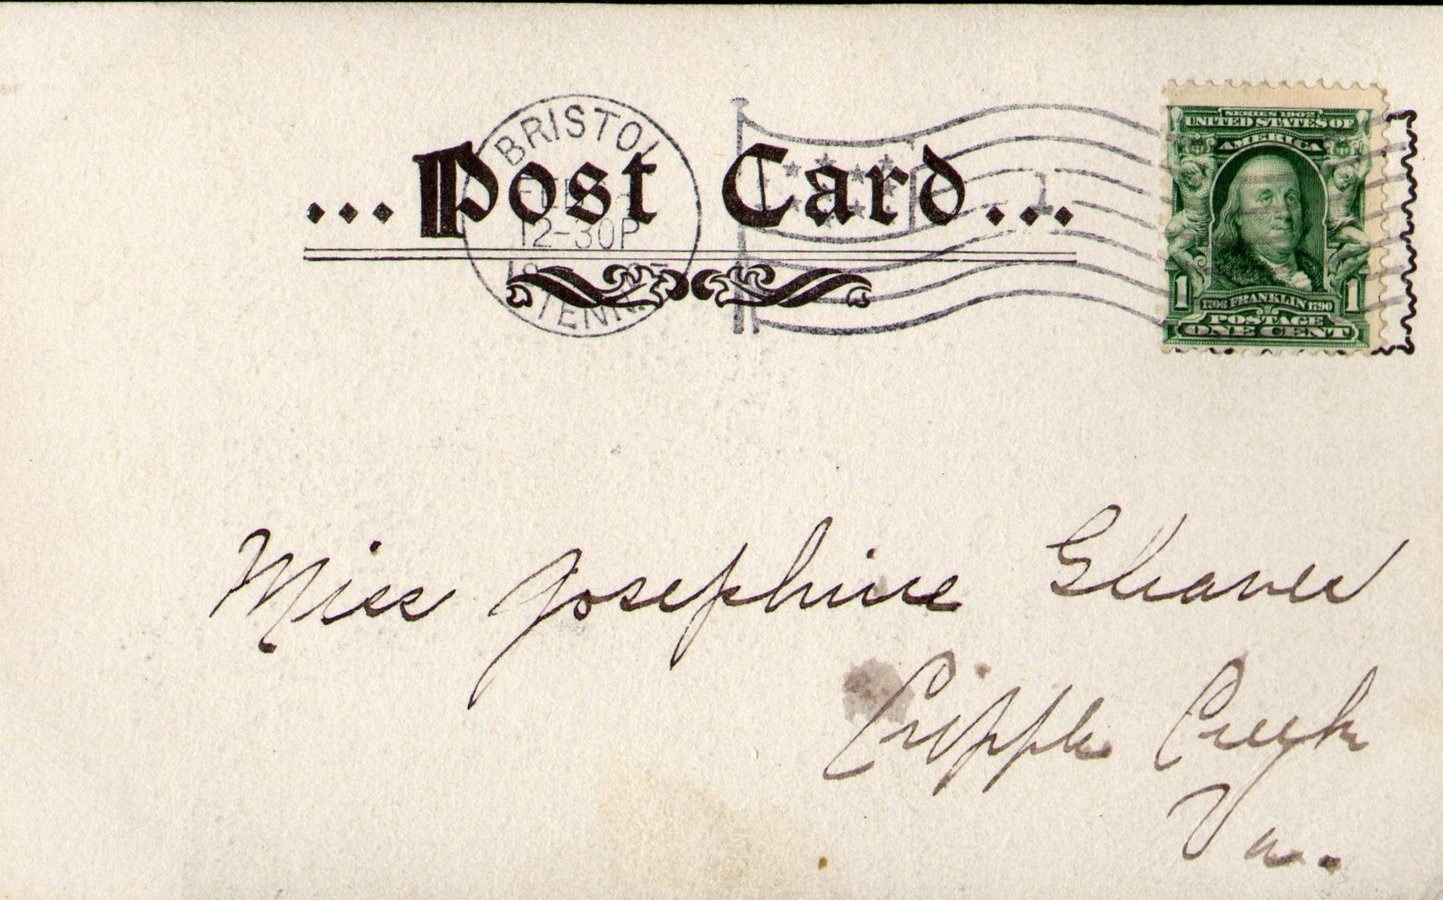 ...Post Card...
BRISTOL
12-30P
TENN.
1
SERIES 1902
UNITED STATES OF
AMERICA
1 1706 FRANKLIN 1790 1
POSTAGE
ONE CENT
Miss Josephine Gleaves
Cripple Creek
Va.